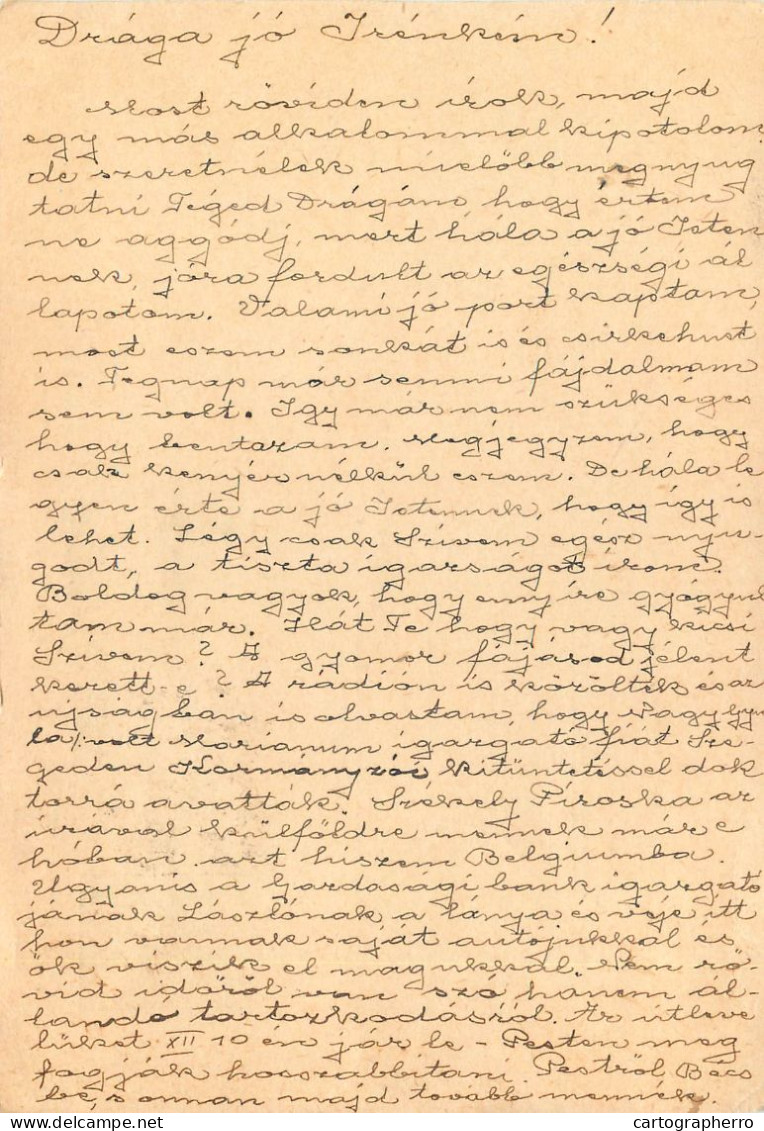 Drága jó Irénkém!
Most röviden írok, majd
egy más alkalommal kipótolom,
de szeretnélek mielőbb megnyug
tatni Téged Drágám, hogy értem
ne aggódj, mert hála a jó Isten
nek, jóra fordult az egészségi ál
lapotom. Valami jó port kaptam,
most eszem sonkát is és csirkehust
is. Tegnap már semmi fájdalmam
sem volt. Igy már nem szükséges
hogy bentazam. Megjegyzem, hogy
csak kenyér nélkül eszem. De hála le
gyen érte a jó Istennek, hogy így is
lehet. Légy csak Szívem egész nyu-
godt, a tiszta igazságot írom.
Boldog vagyok, hogy ennyire gyógyul
tam már. Hát Te hogy vagy kicsi
Szívem? A gyomor fájásod jelent
kezett-e? A rádión is közölték és az
ujságban is olvastam, hogy Nagy Gyu
la /: volt Marianum igazgató fiát Sze-
geden Kormányzói kitüntetéssel dok
torrá avatták. Székely Piroska az
urával külföldre mennek már e
hóban azt hiszem Belgiumba.
Ugyanis a Gazdasági bank igazgató
jának Lászlónak a lánya és veje itt
hon vannak saját autójukkal és
ők viszik el magukkal. Nem rö-
vid időről van szó hanem ál-
landó tartozkodásról. Az útleve
lüket XII 10 én jár le - Pesten meg
fogják hosszabbitani. Pestről Bécs
be, s onnan majd tovább mennek.
cartographerro